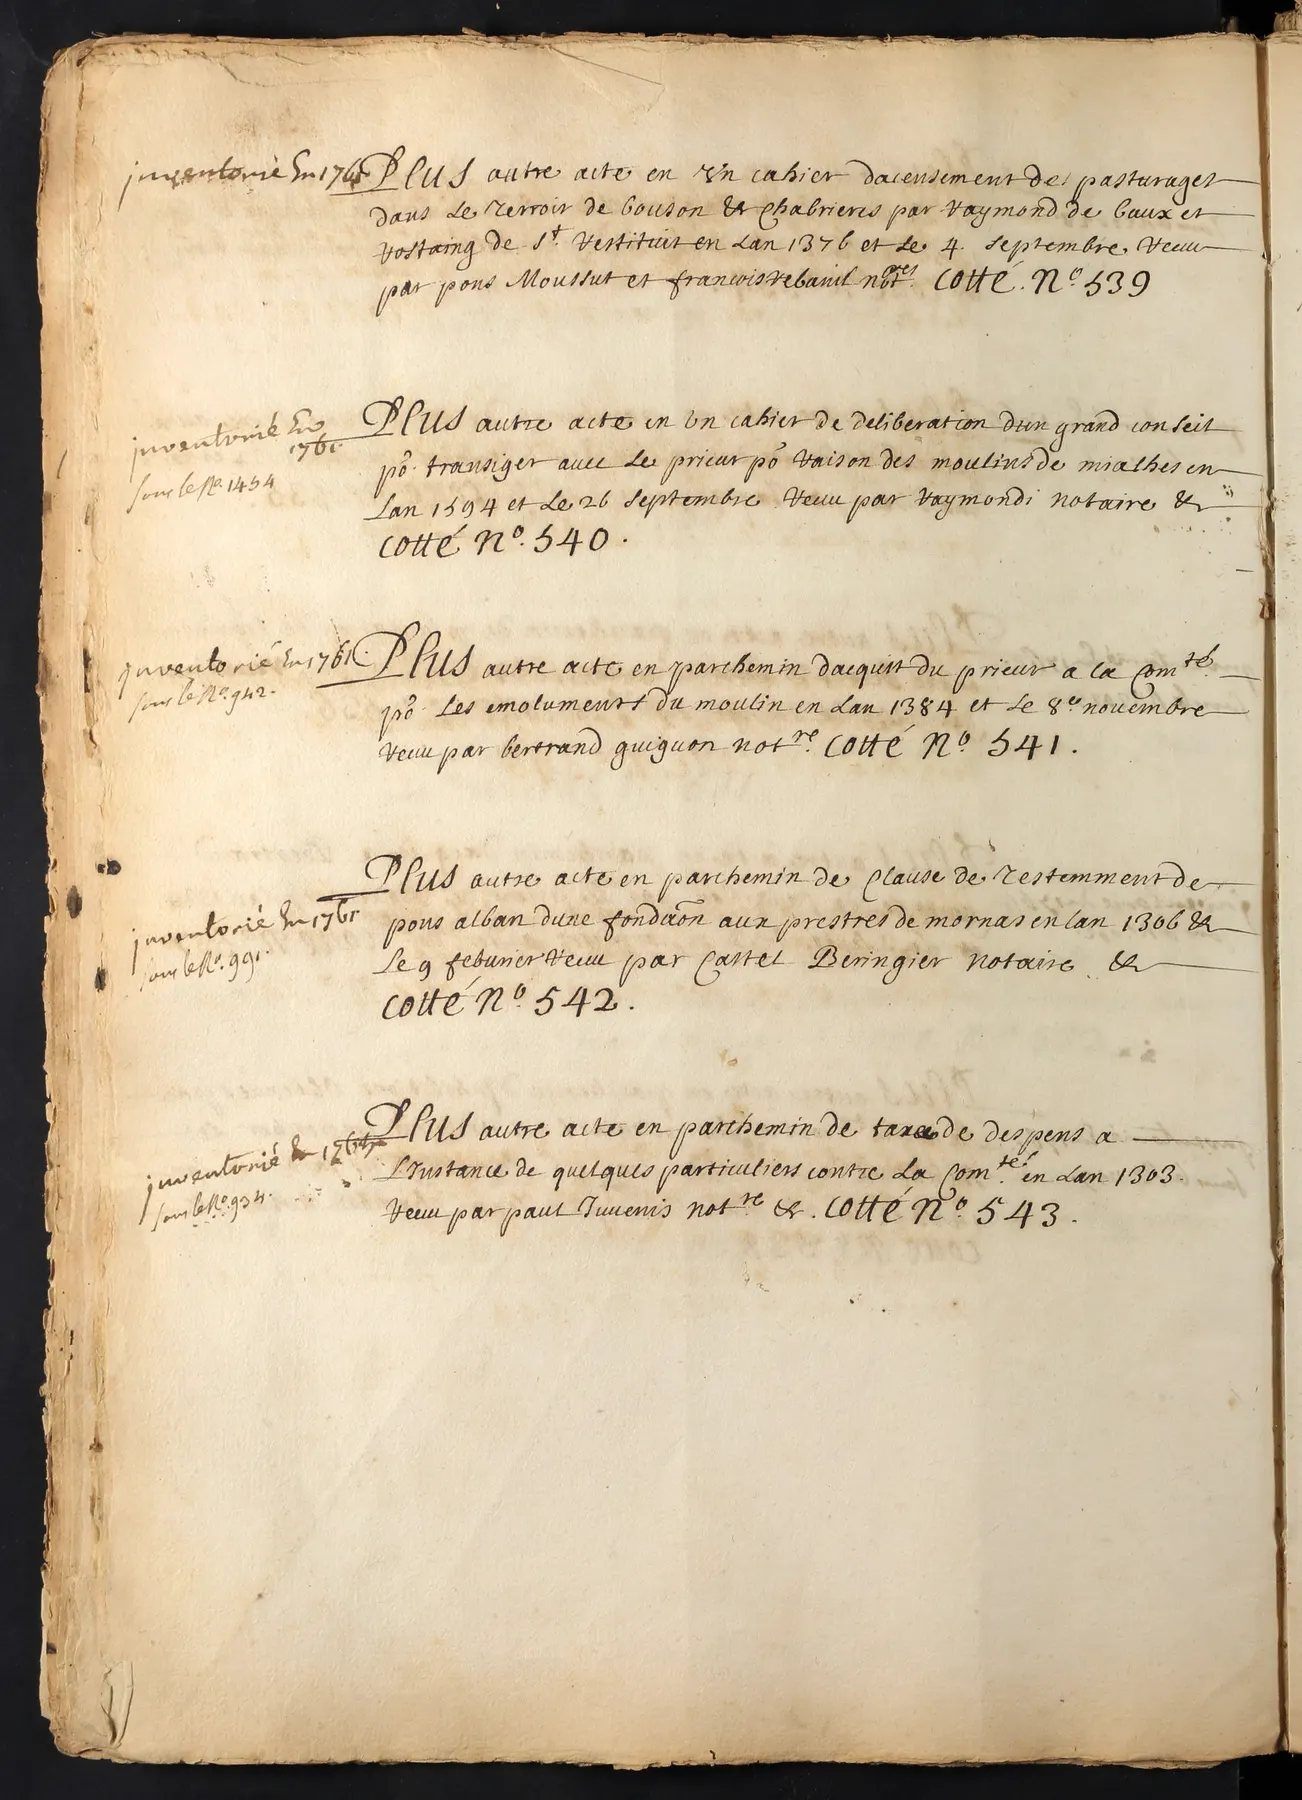 inventorié En 1761
Plus autre acte en Un cahier dacensement des pasturages
dans Le Terroir de bouson & Chabrieres par Raymond de baux et
Rostaing de St. Restitut en Lan 1376 et Le 4 septembre Receu
par pons Moussut et francois Rebaud notres. Cotté. No. 539
inventorié En
1761
sous le No. 1454
Plus autre acte en Un cahier de deliberation dun grand conseil
po. transiger avec Le prieur po Raison des moulins de mialhes en
Lan 1594 et Le 26 septembre Receu par Raymondi notaire &
Cotté No. 540.
inventorié En 1761
sous le No. 942.
Plus autre acte en parchemin dacquit du prieur a la Comté.
po. Les emoluments du moulin en Lan 1384 et Le 8e novembre
Receu par bertrand guiguon notre. Cotté No. 541.
inventorié En 1761
sous le No. 991.
Plus autre acte en parchemin de Clause de Testemment de
pons alban dune fondaon aux prestres de mornas en lan 1306 &
Le 9 feburier Receu par Castel Beringier notaire &
Cotté No. 542.
inventorié En 1761
sous le No. 934.
Plus autre acte en parchemin de taxe de despens a
LInstance de quelques particuliers contre La Comté. en Lan 1303.
Receu par paul Juuenis notre &. Cotté No. 543.